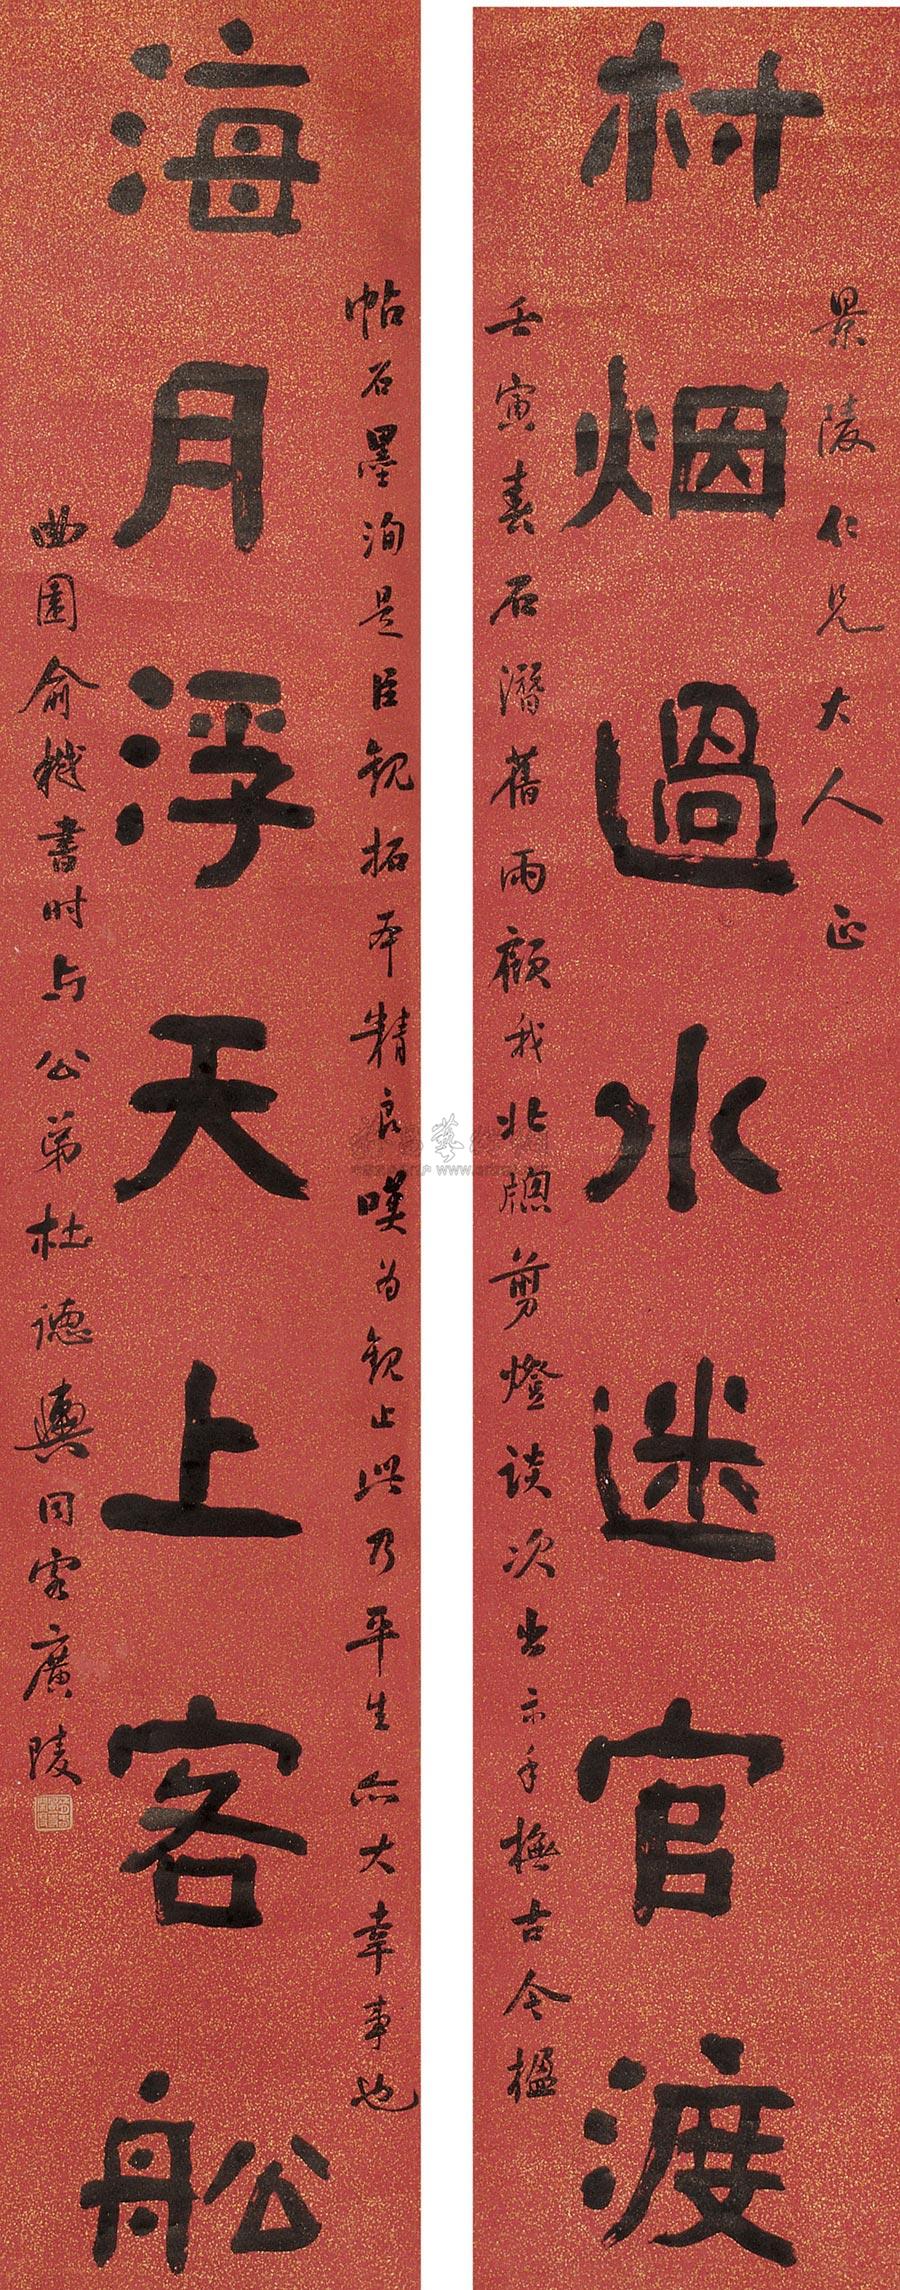 景陵仁兄大人正
村烟過水迷官渡
壬寅春石潛舊雨顧我北牕剪燈談次出示手橅古今楹
帖石墨洵是臣觀拓本精良嘆为觀止此乃平生一大幸事也
海月浮天上客舩
曲園俞樾書时与公弟杜德輿同客廣陵